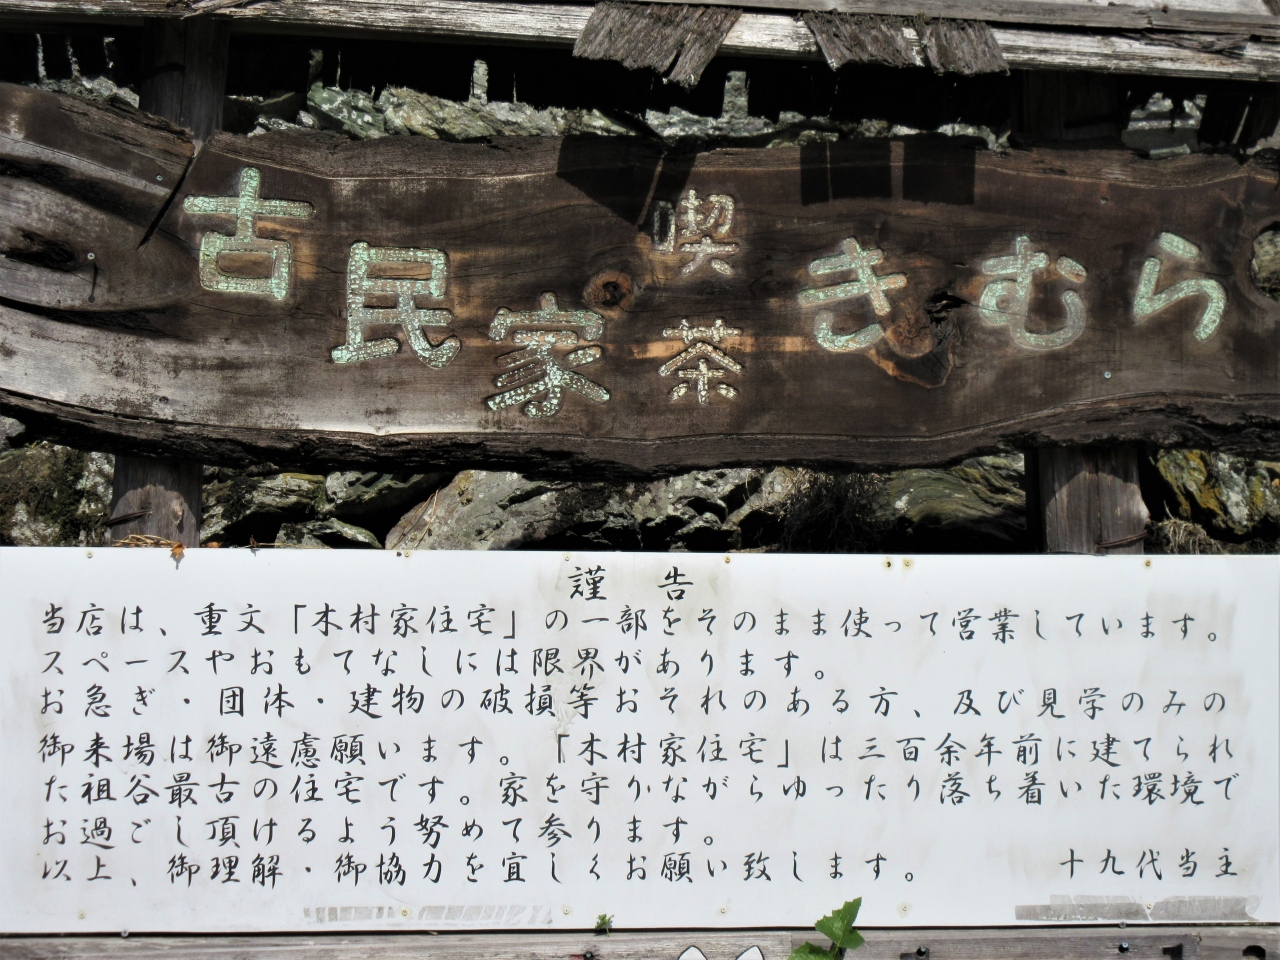 古民家 喫茶 きむら
謹 告
当店は、重文「木村家住宅」の一部をそのまま使って営業しています。
スペースやおもてなしには限界があります。
お急ぎ・団体・建物の破損等おそれのある方、及び見学のみの
御来場は御遠慮願います。「木村家住宅」は三百余年前に建てられ
た祖谷最古の住宅です。家を守りながらゆったり落ち着いた環境で
お過ごし頂けるよう努めて参ります。
以上、御理解・御協力を宜しくお願い致します。 十九代当主